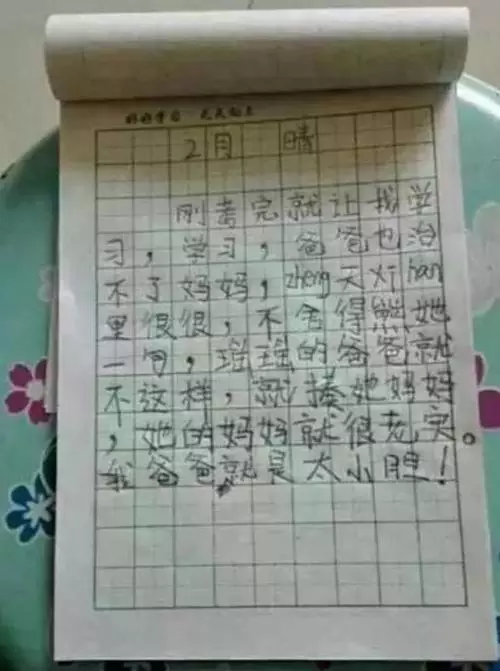 好好学习 天天向上
2月 晴
刚考完就让我学
习，学习，爸爸也治
不了妈妈，zheng天xi han
里很很，不舍得熊她
一句，瑶瑶的爸爸就
不这样，就揍她妈妈
，她的妈妈就很老实。
我爸爸就是太小胆！